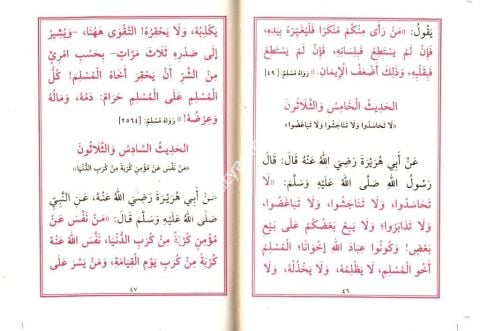 يَقُولُ: «مَنْ رَأَى مِنْكُمْ مُنْكَرًا فَلْيُغَيِّرْهُ بِيَدِهِ،
فَإِنْ لَمْ يَسْتَطِعْ فَبِلِسَانِهِ، فَإِنْ لَمْ يَسْتَطِعْ
فَبِقَلْبِهِ، وَذَلِكَ أَضْعَفُ الْإِيمَانِ.» رَوَاهُ مُسْلِمٌ: [٤٩]
الحَدِيثُ الْخَامِسُ وَالثَّلَاثُونَ
«لَا تَحَاسَدُوا وَلَا تَنَاجَشُوا وَلَا تَبَاغَضُوا»
عَنْ أَبِي هُرَيْرَةَ رَضِيَ اللهُ عَنْهُ قَالَ: قَالَ
رَسُولُ اللهِ صَلَّى اللهُ عَلَيْهِ وَسَلَّمَ: «لَا
تَحَاسَدُوا، وَلَا تَنَاجَشُوا، وَلَا تَبَاغَضُوا،
وَلَا تَدَابَرُوا؛ وَلَا يَبِعْ بَعْضُكُمْ عَلَى بَيْعِ
بَعْضٍ! وَكُونُوا عِبَادَ اللهِ إِخْوَانًا؛ الْمُسْلِمُ
أَخُو الْمُسْلِمِ، لَا يَظْلِمُهُ، وَلَا يَخْذُلُهُ، وَلَا
٤٦
يَكْذِبُهُ، وَلَا يَحْقِرُهُ! التَّقْوَى هٰهُنَا، -وَيُشِيرُ
إِلَى صَدْرِهِ ثَلَاثَ مَرَّاتٍ- بِحَسْبِ امْرِئٍ
مِنَ الشَّرِّ أَنْ يَحْقِرَ أَخَاهُ الْمُسْلِمَ! كُلُّ
الْمُسْلِمِ عَلَى الْمُسْلِمِ حَرَامٌ: دَمُهُ، وَمَالُهُ
وَعِرْضُهُ!» رَوَاهُ مُسْلِمٌ: [٢٥٦٤]
الحَدِيثُ السَّادِسُ وَالثَّلَاثُونَ
«مَنْ نَفَّسَ عَنْ مُؤْمِنٍ كُرْبَةً مِنْ كُرَبِ الدُّنْيَا»
عَنْ أَبِي هُرَيْرَةَ رَضِيَ اللهُ عَنْهُ، عَنِ النَّبِيِّ
صَلَّى اللهُ عَلَيْهِ وَسَلَّمَ قَالَ: «مَنْ نَفَّسَ عَنْ
مُؤْمِنٍ كُرْبَةً مِنْ كُرَبِ الدُّنْيَا، نَفَّسَ اللهُ عَنْهُ
كُرْبَةً مِنْ كُرَبِ يَوْمِ الْقِيَامَةِ، وَمَنْ يَسَّرَ عَلَى
٤٧